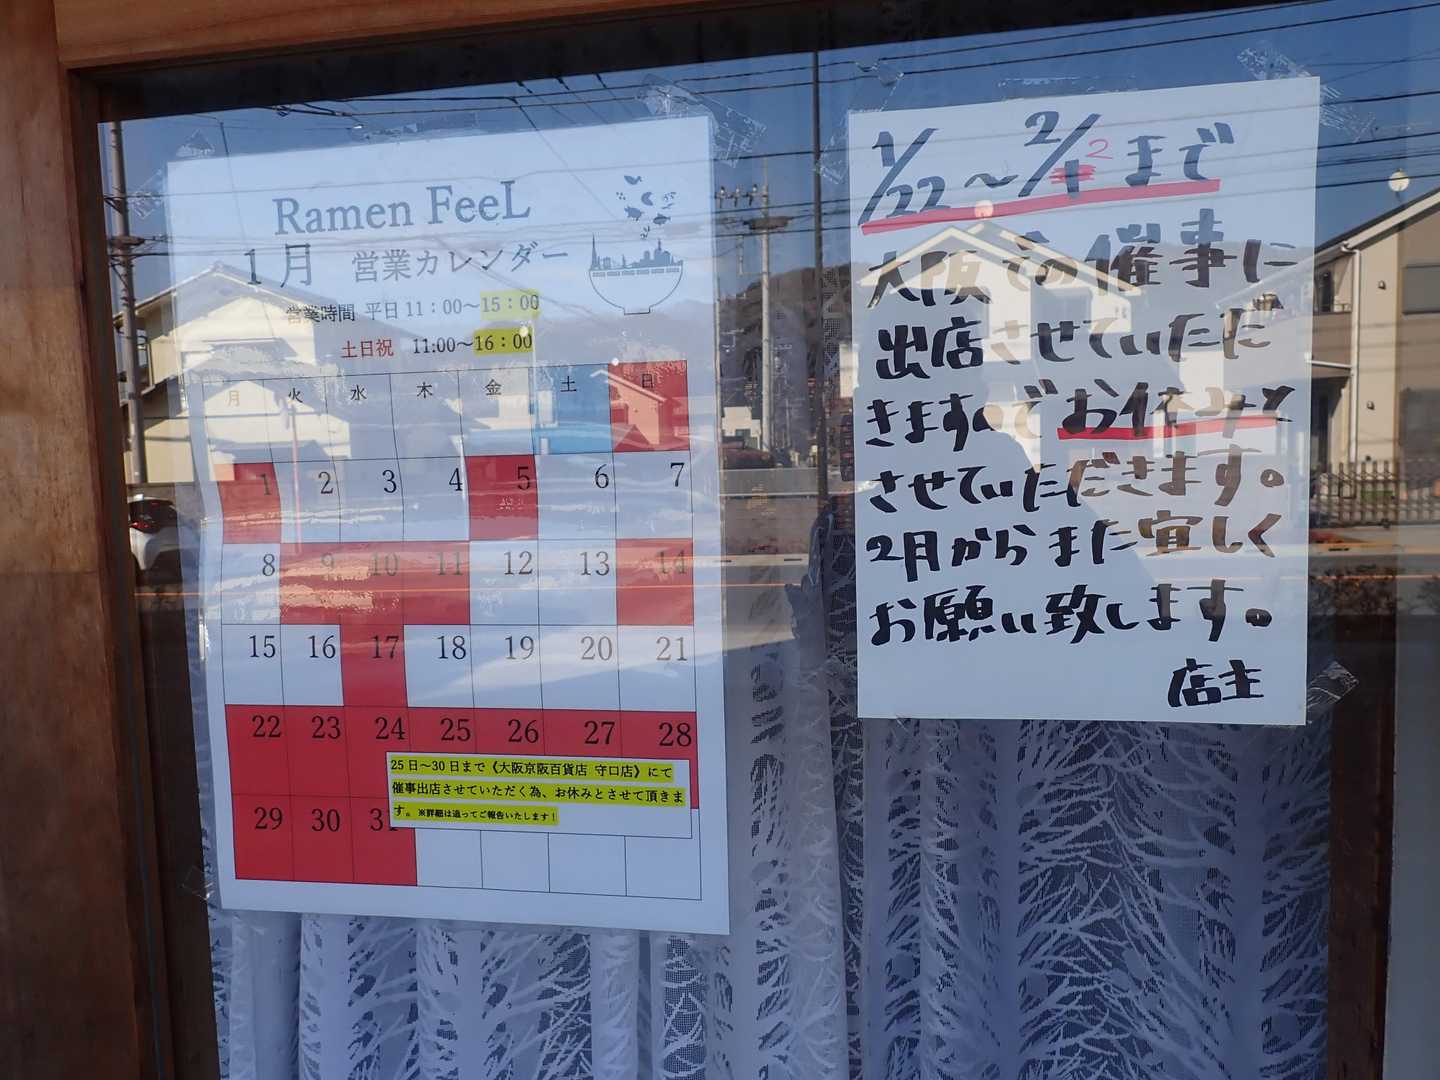 Ramen FeeL
1月 営業カレンダー
営業時間 平日 11：00～15：00
土日祝 11:00～16：00
月 火 水 木 金 土 日
1 2 3 4 5 6 7
8 9 10 11 12 13 14
15 16 17 18 19 20 21
22 23 24 25 26 27 28
25日～30日まで《大阪京阪百貨店 守口店》にて
催事出店させていただく為、お休みとさせて頂きま
す。※詳細は追ってご報告いたします！
29 30 31
1/22～2/2まで
大阪の催事に
出店させていただ
きますのでお休みと
させていただきます。
2月からまた宜しく
お願い致します。
店主